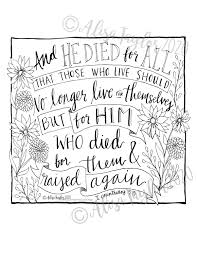 © Alisa Taylor 2021
And HE DIED for ALL
THAT THOSE WHO LIVE SHOULD
No longer live for themselves
BUT for HIM
WHO DIED
for them &
raised again
2 Corinthians 5:15
© Alisa Taylor
© Alisa Taylor